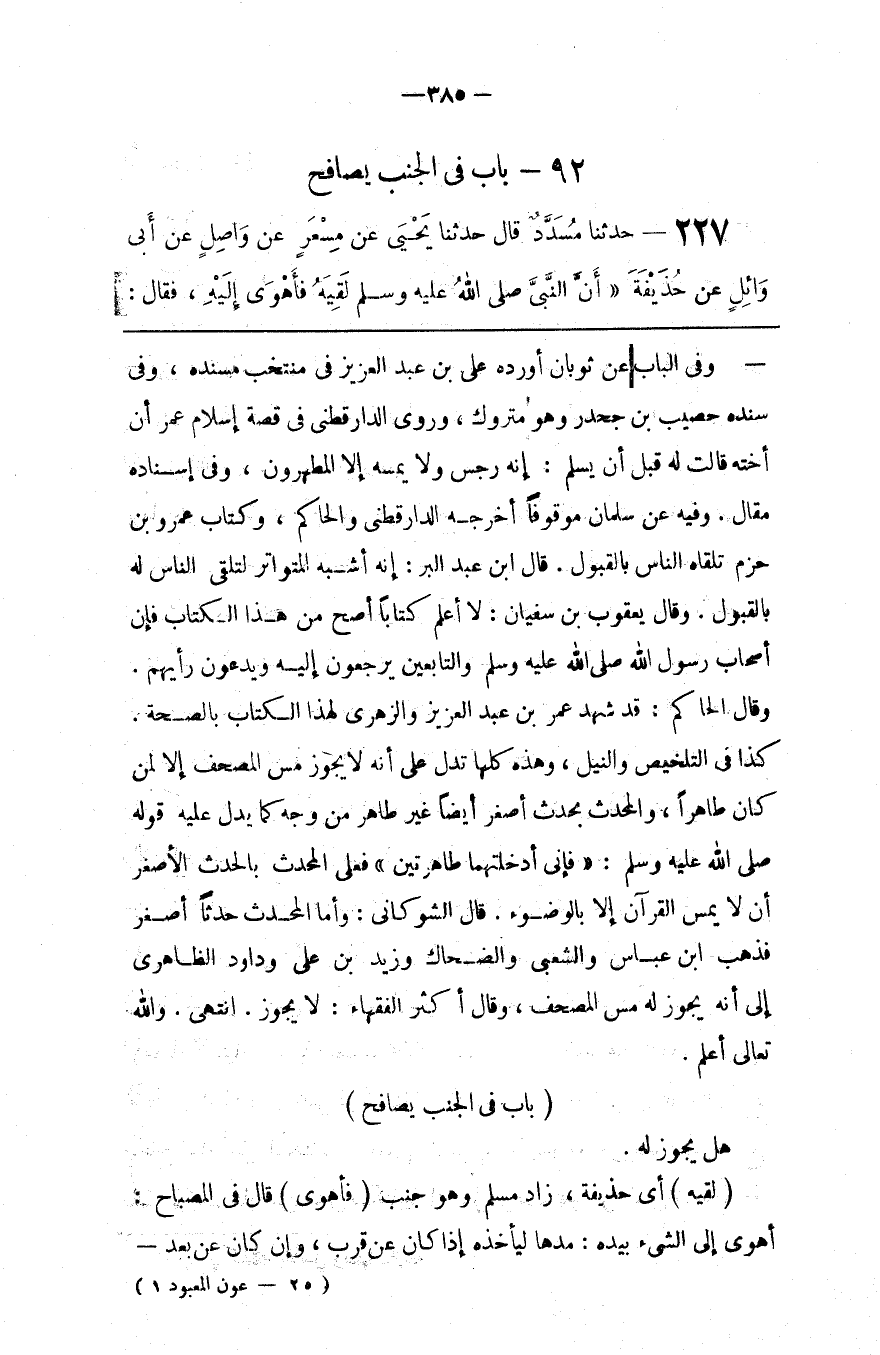 — ٣٨٥ —
٩٢ — باب فى الجنب يصافح
٢٢٧ — حدثنا مُسَدَّدٌ قال حدثنا يَحْيَى عن مِسْعَرٍ عن وَاصِلٍ عن أَبى
وَائِلٍ عن حُذَيْفَةَ « أَنَّ النَّبِىَّ صلى اللهُ عليه وسلم لَقِيَهُ فأَهْوَى إِلَيْهِ ، فقال :
— وفى الباب عن ثوبان أورده على بن عبد العزيز فى منتخب مسنده ، وفى
سنده حصيب بن جحدر وهو متروك ، وروى الدارقطنى فى قصة إسلام عمر أن
أخته قالت له قبل أن يسلم : إنه رجس ولا يمسه إلا المطهرون ، وفى إسناده
مقال . وفيه عن سلمان موقوفاً أخرجه الدارقطنى والحاكم ، وكتاب عمرو بن
حزم تلقاه الناس بالقبول . قال ابن عبد البر : إنه أشبه المتواتر لتلقى الناس له
بالقبول . وقال يعقوب بن سفيان : لا أعلم كتاباً أصح من هذا الكتاب فإن
أصحاب رسول الله صلى الله عليه وسلم والتابعين يرجعون إليه ويدعون رأيهم .
وقال الحاكم : قد شهد عمر بن عبد العزيز والزهرى لهذا الكتاب بالصحة .
كذا فى التلخيص والنيل ، وهذه كلها تدل على أنه لا يجوز مس المصحف إلا لمن
كان طاهراً ، والمحدث بحدث أصغر أيضاً غير طاهر من وجه كما يدل عليه قوله
صلى الله عليه وسلم : « فإنى أدخلتهما طاهرتين » فعلى المحدث بالحدث الأصغر
أن لا يمس القرآن إلا بالوضوء . قال الشوكانى : وأما المحدث حدثاً أصغر
فذهب ابن عباس والشعبى والضحاك وزيد بن على وداود الظاهرى
إلى أنه يجوز له مس المصحف ، وقال أكثر الفقهاء : لا يجوز . انتهى . والله
تعالى أعلم .
( باب فى الجنب يصافح )
هل يجوز له .
( لقيه ) أى حذيفة ، زاد مسلم وهو جنب ( فأهوى ) قال فى المصباح :
أهوى إلى الشىء بيده : مدها ليأخذه إذا كان عن قرب ، وإن كان عن بعد —
( ٢٥ — عون المعبود ١ )